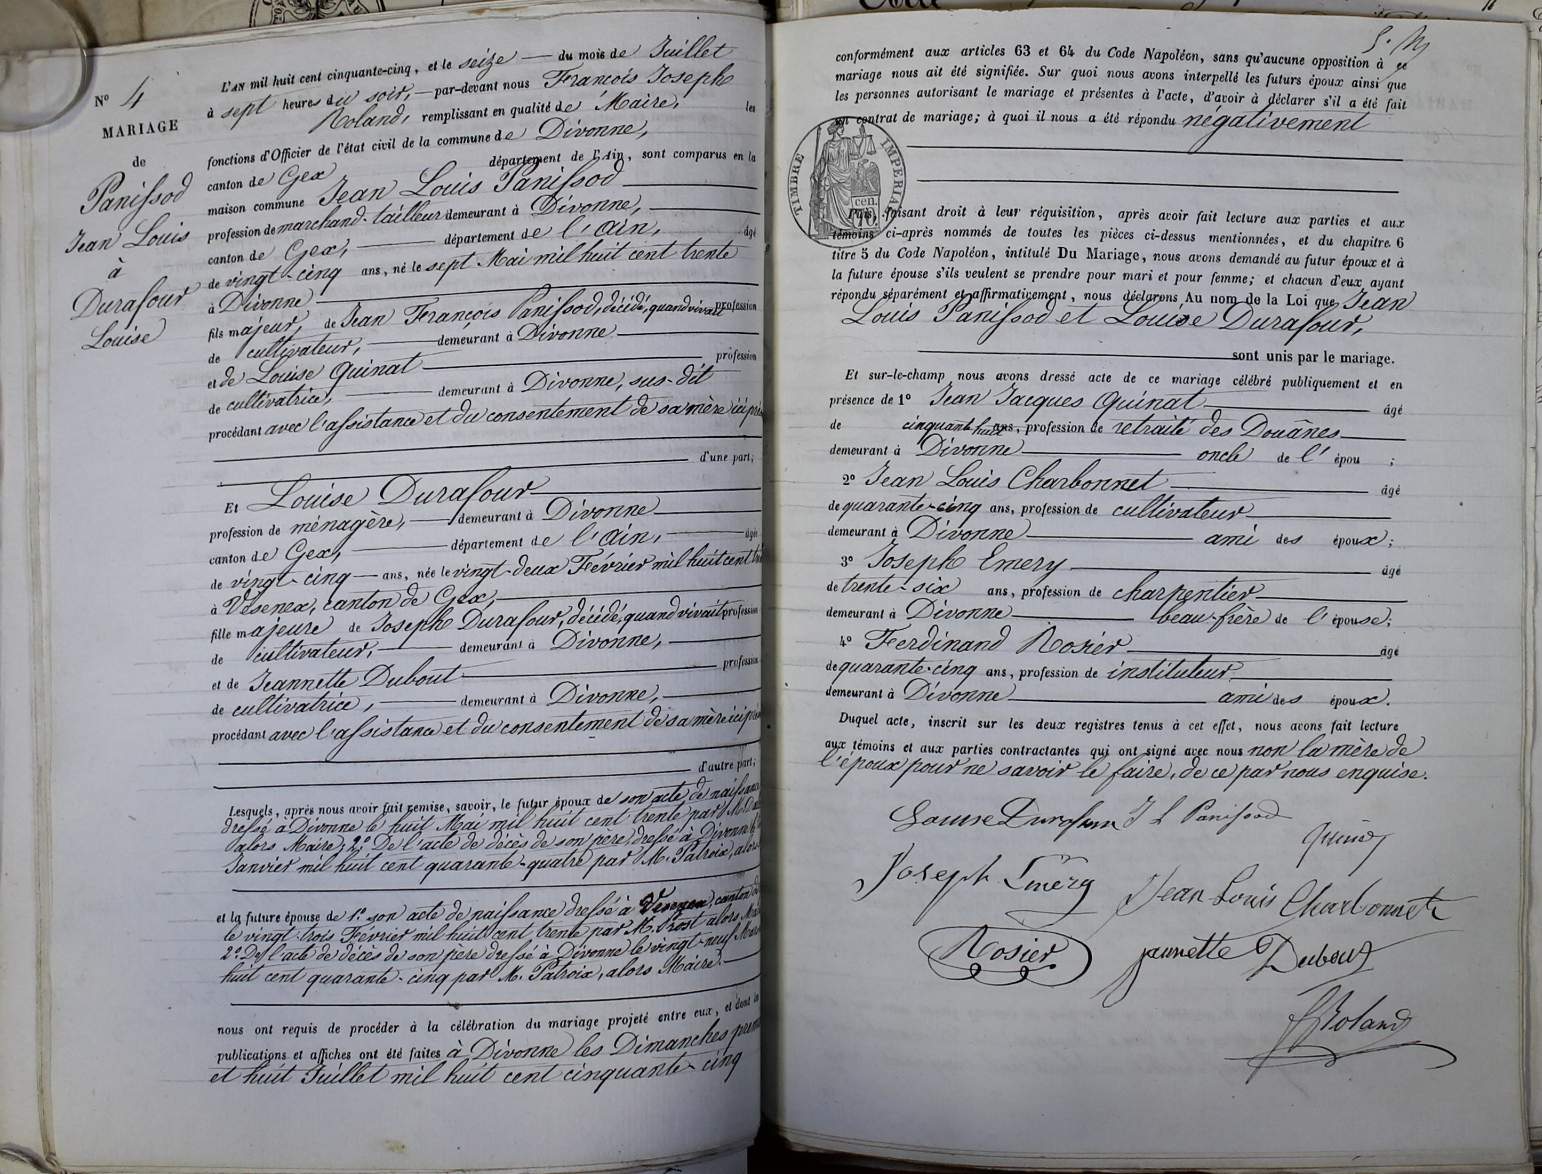 N° 4
MARIAGE
de
Panissod
Jean Louis
à
Durafour
Louise
L'AN mil huit cent cinquante-cinq, et le seize du mois de Juillet
à sept heures du soir, par-devant nous François Joseph
Roland, remplissant en qualité de Maire, les
fonctions d'Officier de l'état civil de la commune de Divonne,
canton de Gex département de l'Ain, sont comparus en la
maison commune Jean Louis Panissod
profession de marchand-tailleur demeurant à Divonne,
canton de Gex, département de l'Ain, âgé
de vingt-cinq ans, né le sept Mai mil huit cent trente
à Divonne
fils majeur, de Jean François Panissod, décédé, quand vivait profession
de cultivateur, demeurant à Divonne
et de Louise Quinat profession
de cultivatrice, demeurant à Divonne, sus-dit
procédant avec l'assistance et du consentement de sa mère ici
d'une part;
Et Louise Durafour
profession de ménagère, demeurant à Divonne
canton de Gex, département de l'Ain, âgée
de vingt-cinq ans, née le vingt-deux Février mil huit cent
à Vésenex, canton de Gex,
fille majeure de Joseph Durafour, décédé, quand vivait profession
de cultivateur, demeurant à Divonne,
et de Jeannette Dubout profession
de cultivatrice, demeurant à Divonne,
procédant avec l'assistance et du consentement de sa mère ici
d'autre part;
Lesquels, après nous avoir fait remise, savoir, le futur époux de son acte de naissance
dressé à Divonne le huit Mai mil huit cent trente par M.
alors Maire, 2° De l'acte de décès de son père, dressé à Divonne
Janvier mil huit cent quarante-quatre par M. Patroix, alors
et la future épouse de 1° son acte de naissance dressé à Vesenex, canton de
le vingt-trois Février mil huit cent trente par M. Prost alors
2° De l'acte de décès de son père dressé à Divonne le vingt-neuf
huit cent quarante-cinq par M. Patroix, alors Maire.
nous ont requis de procéder à la célébration du mariage projeté entre eux, et dont les
publications et affiches ont été faites à Divonne les Dimanches
et huit Juillet mil huit cent cinquante-cinq
conformément aux articles 63 et 64 du Code Napoléon, sans qu'aucune opposition à ce
mariage nous ait été signifiée. Sur quoi nous avons interpellé les futurs époux ainsi que
les personnes autorisant le mariage et présentes à l'acte, d'avoir à déclarer s'il a été fait
un contrat de mariage; à quoi il nous a été répondu négativement
TIMBRE IMPERIAL
cen.
Puis, faisant droit à leur réquisition, après avoir fait lecture aux parties et aux
témoins ci-après nommés de toutes les pièces ci-dessus mentionnées, et du chapitre 6
titre 5 du Code Napoléon, intitulé Du Mariage, nous avons demandé au futur époux et à
la future épouse s'ils veulent se prendre pour mari et pour femme; et chacun d'eux ayant
répondu séparément et affirmativement, nous déclarons Au nom de la Loi que Jean
Louis Panissod et Louise Durafour,
sont unis par le mariage.
Et sur-le-champ nous avons dressé acte de ce mariage célébré publiquement et en
présence de 1° Jean Jacques Quinat âgé
de cinquante-huit ans, profession de retraité des Douânes
demeurant à Divonne oncle de l'épou ;
2° Jean Louis Charbonnet âgé
de quarante-cinq ans, profession de cultivateur
demeurant à Divonne ami des époux;
3° Joseph Emery âgé
de trente-six ans, profession de charpentier
demeurant à Divonne beau-frère de l'épouse;
4° Ferdinand Rosier âgé
de quarante-cinq ans, profession de instituteur
demeurant à Divonne ami des époux.
Duquel acte, inscrit sur les deux registres tenus à cet effet, nous avons fait lecture
aux témoins et aux parties contractantes qui ont signé avec nous non la mère de
l'époux pour ne savoir le faire, de ce par nous enquise.
Louise Durafour J L Panissod
Joseph Emery Jean Louis Charbonnet
Rosier Jeannette Dubout
Roland